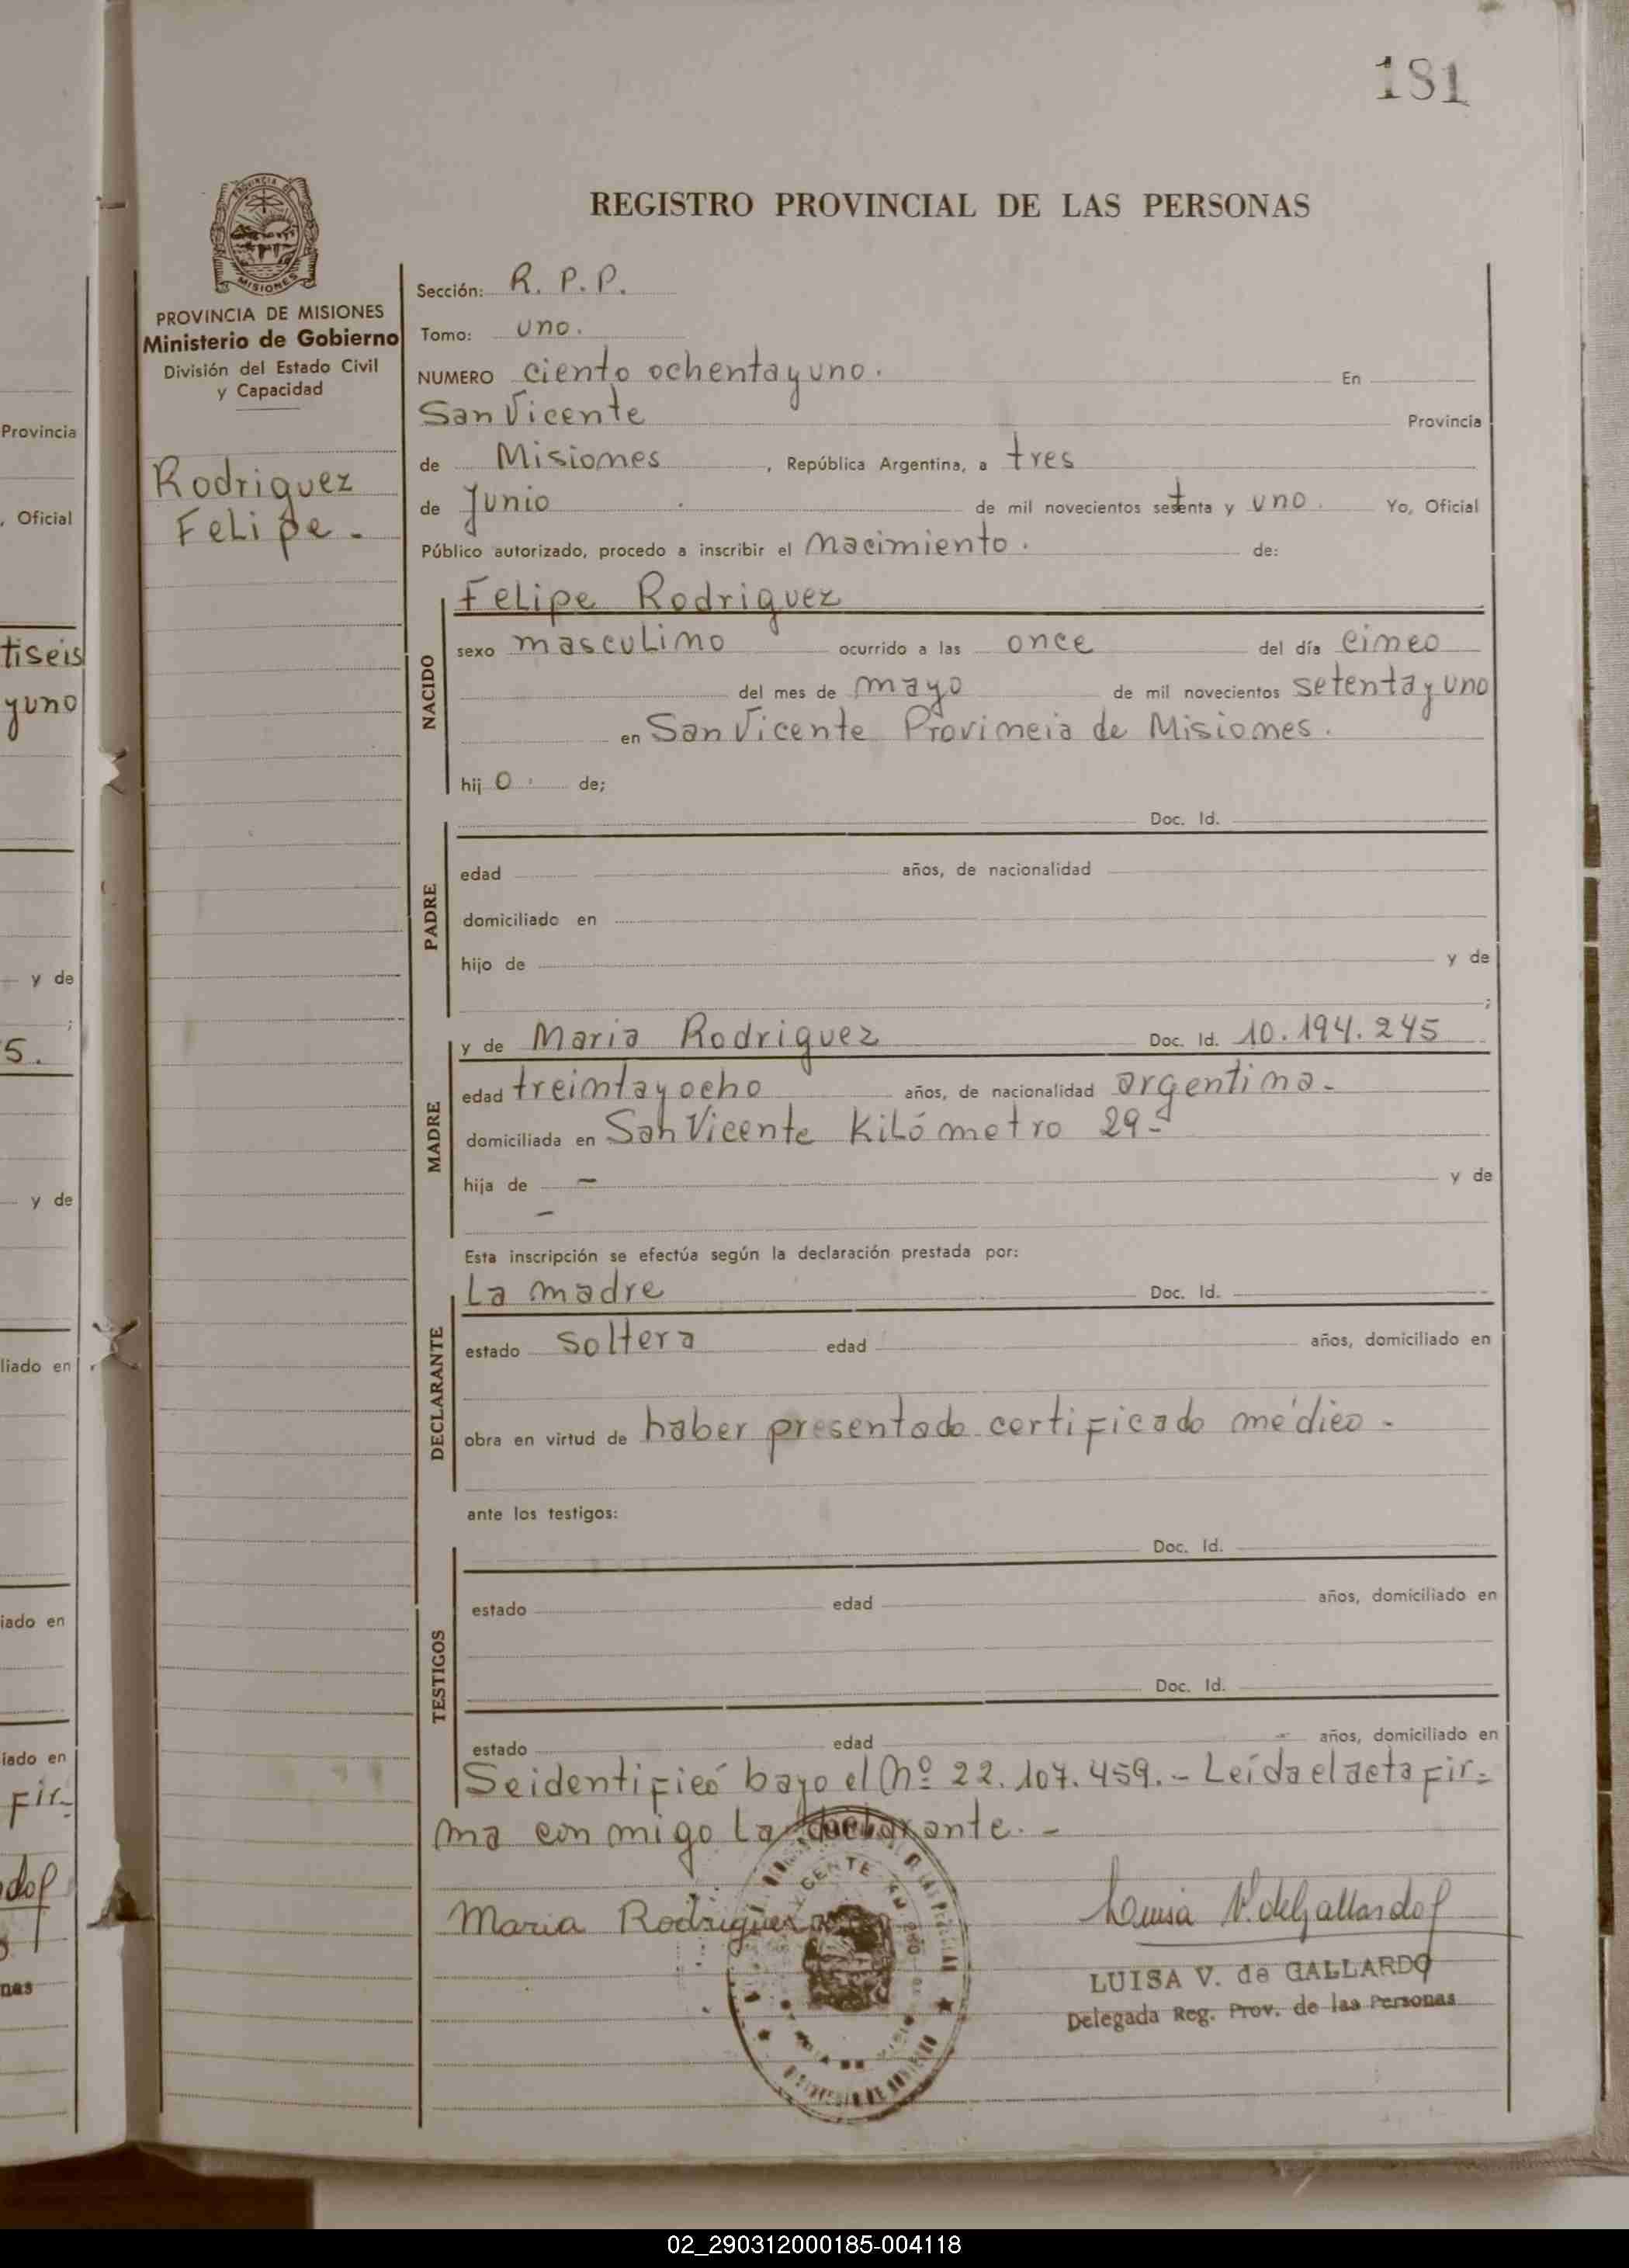 181
PROVINCIA DE
MISIONES
REGISTRO PROVINCIAL DE LAS PERSONAS
PROVINCIA DE MISIONES
Ministerio de Gobierno
División del Estado Civil
y Capacidad
Rodriguez
Felipe -
Sección: R. P. P.
Tomo: uno.
NUMERO ciento ochentayuno. En
San Vicente Provincia
de Misiones, República Argentina, a tres
de Junio de mil novecientos setenta y uno. Yo, Oficial
Público autorizado, procedo a inscribir el nacimiento. de:
NACIDO
Felipe Rodriguez
sexo masculino ocurrido a las once del día cinco
del mes de mayo de mil novecientos setenta y uno
en San Vicente Provincia de Misiones.
hijo de;
PADRE
Doc. Id.
edad años, de nacionalidad
domiciliado en
hijo de y de
;
MADRE
y de Maria Rodriguez Doc. Id. 10.194.245
edad treintayocho años, de nacionalidad argentina-
domiciliada en San Vicente Kilómetro 29-
hija de - y de
-
Esta inscripción se efectúa según la declaración prestada por:
DECLARANTE
La madre Doc. Id.
estado soltera edad años, domiciliado en
obra en virtud de haber presentado certificado médico-
ante los testigos:
TESTIGOS
Doc. Id.
estado edad años, domiciliado en
Doc. Id.
estado edad años, domiciliado en
Seidentificó bajo el Nº 22.107.459.- Leída el acta fir=
ma conmigo la declarante.-
Maria Rodriguez
Luisa V. de Gallardo
LUISA V. de GALLARDO
Delegada Reg. Prov. de las Personas
Provincia
, Oficial
tiseis
yuno
y de
;
5.
y de
liado en
iado en
iado en
fir-
nas
02_290312000185-004118